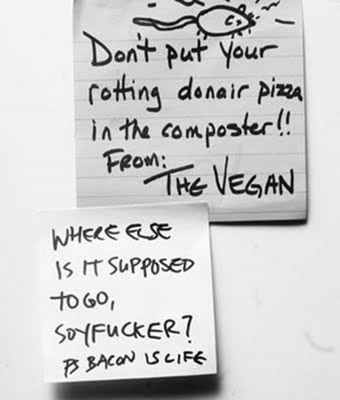 Don't put your
rotting donair pizza
in the composter!!
From:
THE VEGAN
WHERE ELSE
IS IT SUPPOSED
TO GO,
SOYFUCKER?
PS BACON IS LIFE